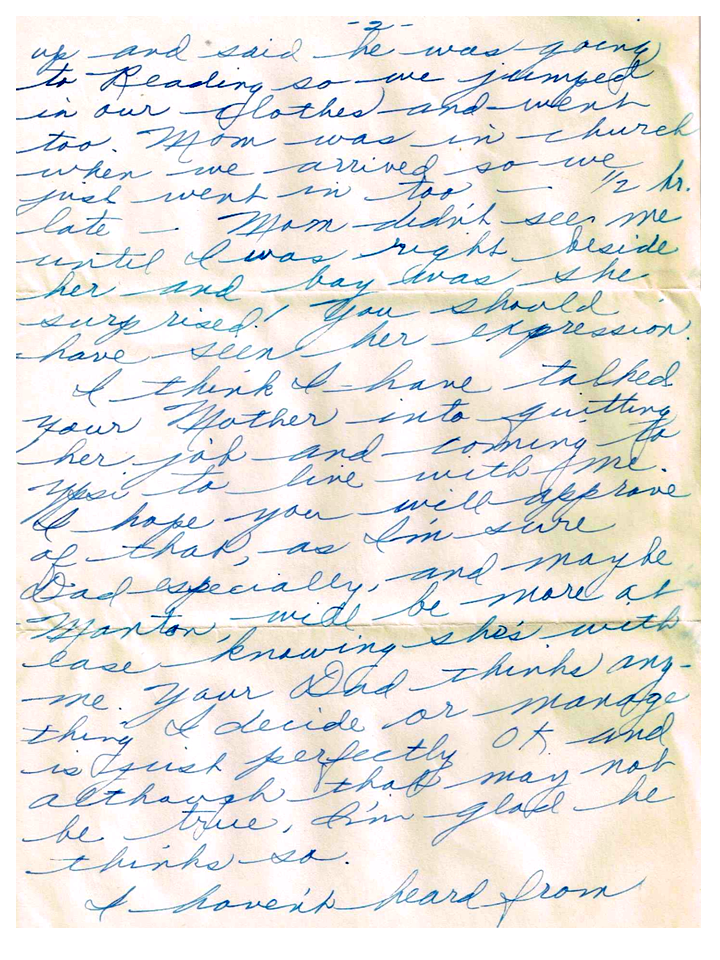 -2-
up and said he was going
to Reading so we jumped
in our clothes and went
too. Mom was in church
when we arrived so we
just went in too — 1/2 hr.
late — Mom didn't see me
until I was right beside
her and boy was she
surprised! You should
have seen her expression.
I think I have talked
your Mother into quitting
her job and coming to
Ypsi to live with me.
I hope you will approve
of that, as I'm sure
Dad especially, and maybe
Manton, will be more at
ease knowing she's with
me. Your Dad thinks any-
thing I decide or manage
is just perfectly OK and
although that may not
be true, I'm glad he
thinks so.
I haven't heard from